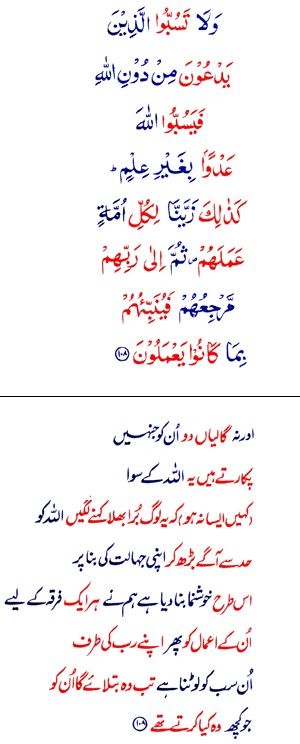 وَلَا تَسُبُّوا الَّذِيْنَ
يَدْعُوْنَ مِنْ دُوْنِ اللّٰهِ
فَيَسُبُّوا اللّٰهَ
عَدْوًاۢ بِغَيْرِ عِلْمٍ ؕ
كَذٰلِكَ زَيَّنَّا لِكُلِّ اُمَّةٍ
عَمَلَهُمْ ۪ ثُمَّ اِلٰى رَبِّهِمْ
مَّرْجِعُهُمْ فَيُنَبِّئُهُمْ
بِمَا كَانُوْا يَعْمَلُوْنَ ۝۱۰۸
اور نہ گالیاں دو اُن کو جنہیں
پکارتے ہیں یہ اللہ کے سوا
(کہیں ایسا نہ ہو) کہ یہ لوگ بُرا بھلا کہنے لگیں اللہ کو
حد سے آگے بڑھ کر اپنی جہالت کی بنا پر
اس طرح خوشنما بنا دیا ہے ہم نے ہر ایک فرقہ کے لیے
اُن کے اعمال کو پھر اپنے رب کی طرف
اُن سب کو لوٹنا ہے تب وہ بتلائے گا اُن کو
جو کچھ وہ کیا کرتے تھے ۝۱۰۸